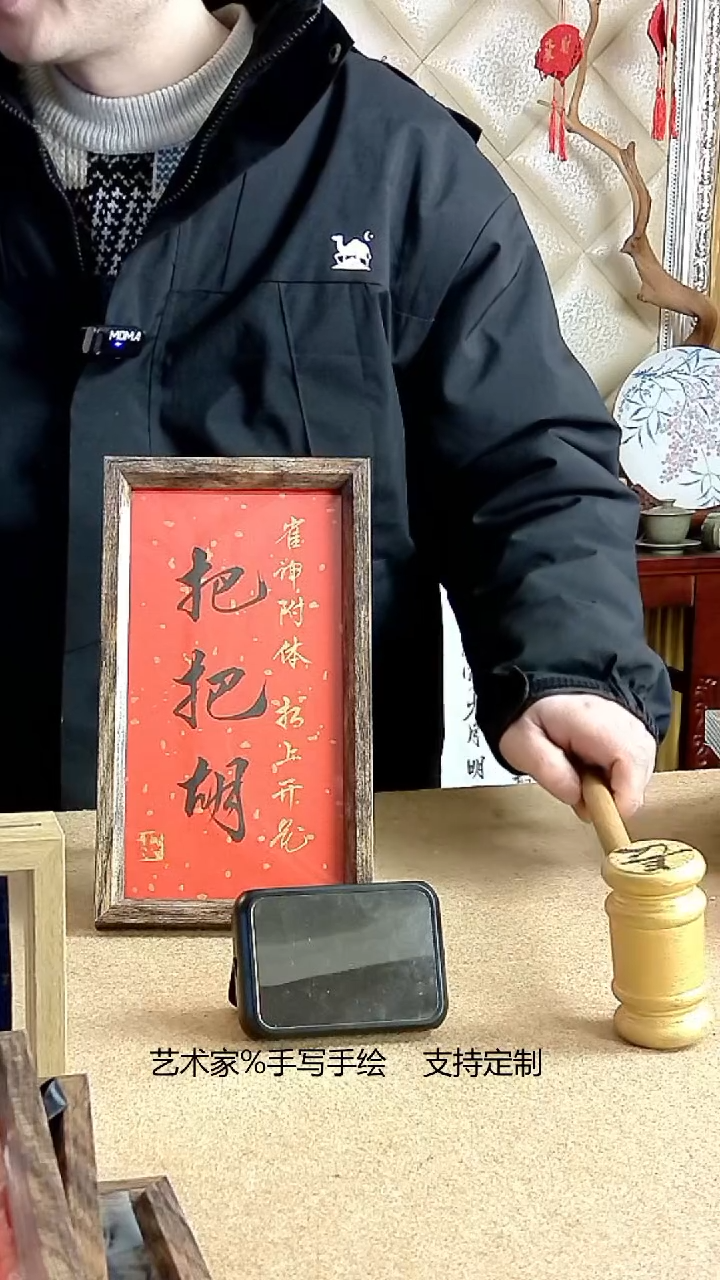 MOMA
雀神附体 杠上开花
把把胡
月
明
艺术家%手写手绘 支持定制